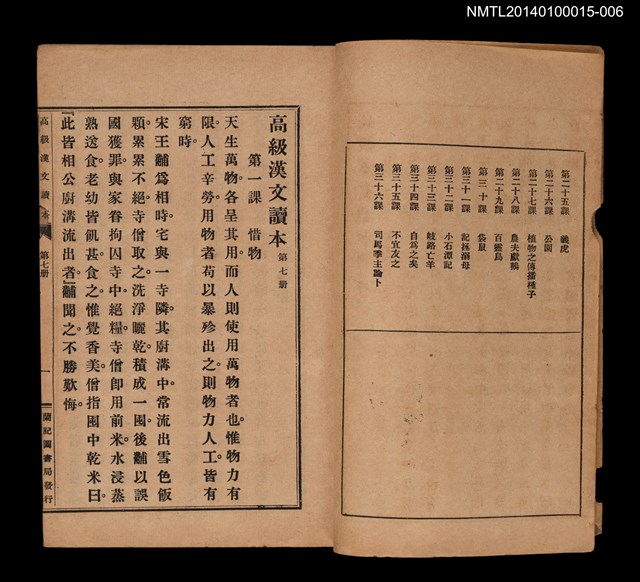 NMTL20140100015-006
第二十五課 義虎
第二十六課 公園
第二十七課 植物之傳播種子
第二十八課 農夫獻鵝
第二十九課 百靈鳥
第三十課 袋鼠
第三十一課 記孫溺母
第三十二課 小石潭記
第三十三課 岐路亡羊
第三十四課 自為之矣
第三十五課 不宜友之
第三十六課 司馬季主論卜
高級漢文讀本 第七册
第一課 惜物
天生萬物。各呈其用。而人則使用萬物者也。惟物力有
限。人工辛勞。用物者苟以暴殄出之。則物力人工。皆有
窮時。
宋王黼爲相時。宅與一寺隣。其厨溝中。常流出雪色飯
顆。累累不絕。寺僧取之。洗淨曬乾。積成一囤。後黼以誤
國獲罪。與家眷拘囚寺中。絕糧。寺僧卽用前米。水浸蒸
熟送食。老幼皆飢甚。食之。惟覺香美。僧指囤中乾米曰。
『此皆相公厨溝流出者。』黼聞之。不勝歎悔。
高級漢文讀本 第七册 一 蘭記圖書局發行